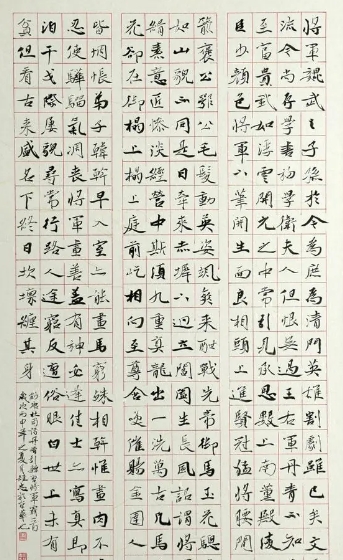 將軍魏武之子孫於今為庶為清門英雄割據雖已矣文
流今尚存學書初學衛夫人但恨無過王右軍丹青不知
至富貴於我如浮雲開元之中常引見承恩數上南薰殿
臣少顏色將軍下筆開生面良相頭上進賢冠猛將腰間
箭褒公鄂公毛髮動英姿颯爽來酣戰先帝天馬玉花驄
如山貌不同是日牽來赤墀下迥立閶闔生長風詔謂將
絹素意匠慘澹經營中斯須九重真龍出一洗萬古凡馬
花卻在御榻上榻上庭前屹相向至尊含笑催賜金圉人
皆惆悵弟子韓幹早入室亦能畫馬窮殊相幹惟畫肉不
忍使驊騮氣凋喪將軍畫善蓋有神必逢佳士亦寫真即
泊干戈際屢貌尋常行路人途窮反遭俗眼白世上未有
貧但看古來盛名下終日坎壈纏其身
杜甫詩丹青引贈曹將軍霸
歲次丙申年之夏月